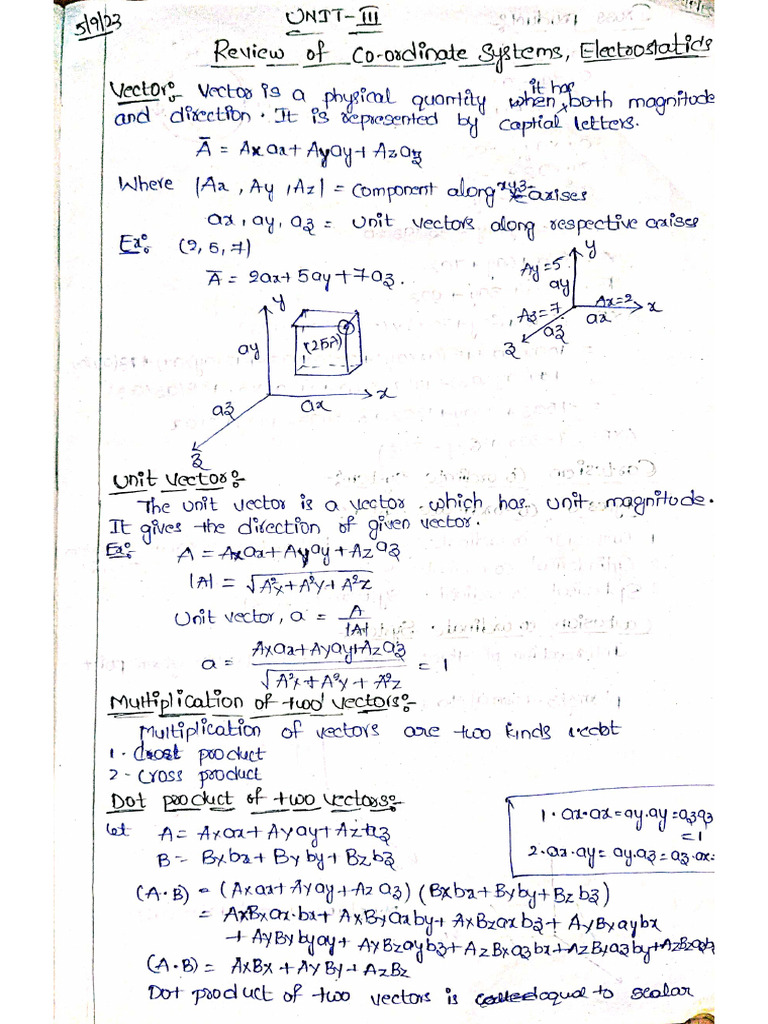 5/9/23
UNIT-III
Review of Co-ordinate Systems, Electrostatics
Vector:- Vector is a physical quantity when it has both magnitude
and direction. It is represented by captial letters.
Ā = Axax+ Ayay+ Azaz
Where |Ax, Ay, Az| = component along xyz axises
ax, ay, az = unit vectors along respective axises
Ex: (2, 5, 7)
Ā = 2ax+ 5ay + 7az.
y
Ay=5
ay
Az=7
az
Ax=2
ax
x
z
y
ay
(2,5,7)
ax
x
az
z
Unit vector:-
The unit vector is a vector which has unit magnitude.
It gives the direction of given vector.
Ex: A = Axax+ Ayay+ Azaz
|A| = √A²x+A²y+A²z
Unit vector, a = A/|A|
a = Axax+Ayay+Azaz / √A²x+A²y+A²z = 1
Multiplication of two vectors:-
Multiplication of vectors are two kinds
1. product
2- Cross product
Dot product of two vectors:-
let A = Axax+ Ayay+ Az
B = Bxbx+ Byby+ Bzbz
1. ax.ax=ay.ay=azaz
=1
2. ax.ay= ay.az=az.ax=
(A.B) = (Axax+ Ayay+ Az az) (Bxbx+ Byby+ Bz bz)
= AxBxax.bx+ AxByaxby+ AxBzaxbz+ AyBxaybx
+ AyBy byay+ AyBzaybz+ AzBxazbx+AzByazby+AzBzazbz
(A.B) = AxBx + AyBy + AzBz
Dot product of two vectors is equal to scalar